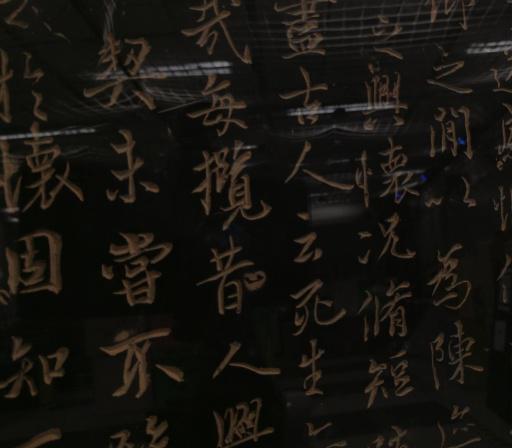 之閒以為陳
之興懷況脩短
盡古人云死生亦
哉每攬昔人興
契未嘗不臨
於懷固知一